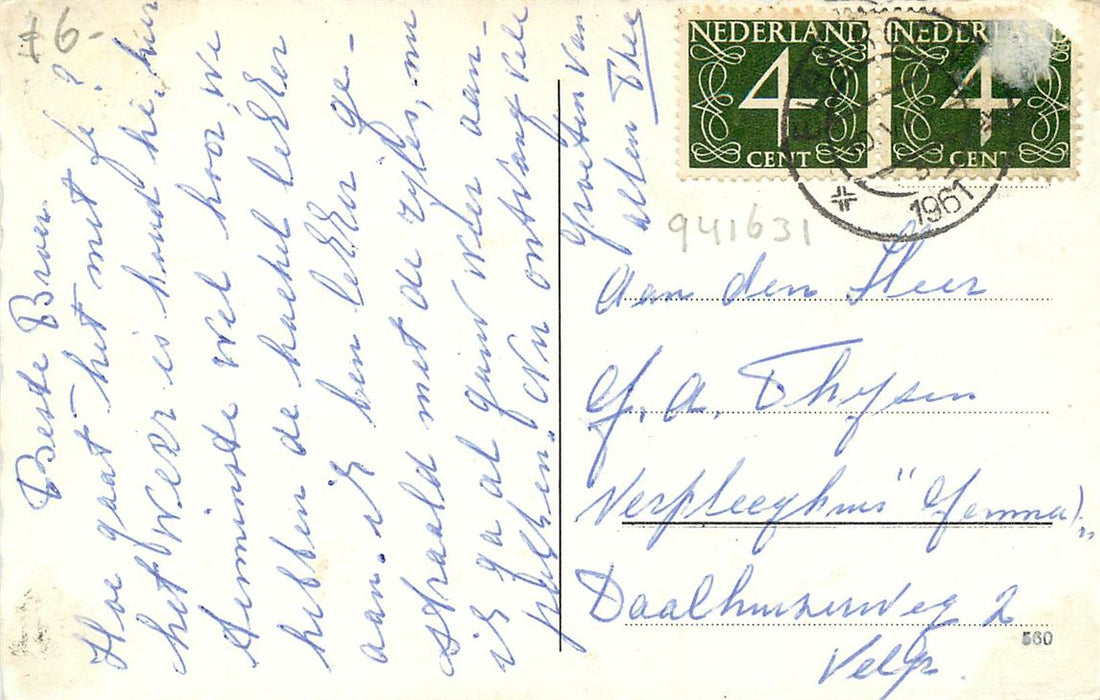 Beste Broer.
Hoe gaat het met je?
het weer is hand he hier
teminste wel hoor, we
hebben de kachel lekker
aan. ik ben lekker ge-
straald met de rijles, nu
ik ga al gauw weer aan-
pakken. Nu ontvang vele
groeten van
allen Thea
f6-
NEDERLAND
4
CENT
NEDERLAND
4
CENT
1961
941631
Aan den Heer
G. A. Thijsen
Verpleeghuis "Gemma",,
Daalhuizerweg 2
Velp.
560